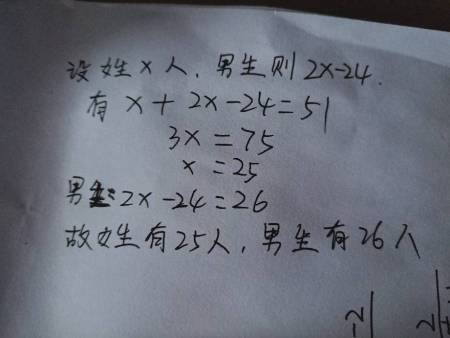 设女生x人,男生则2x-24.
有 x+2x-24=51
3x=75
x=25
男生:2x-24=26
故女生有25人,男生有26人